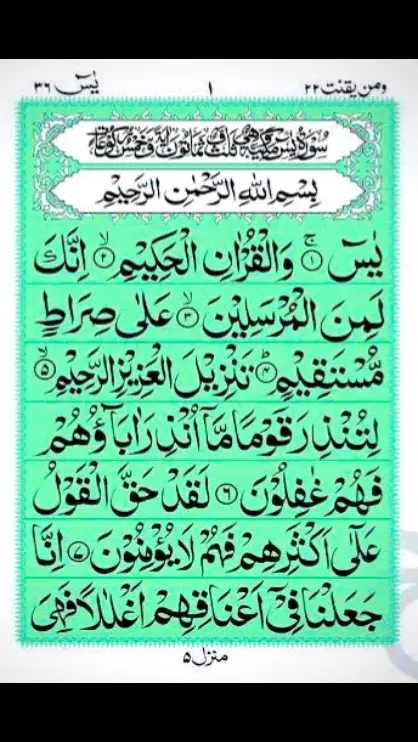 ومن یقنت ۲۲ ۱ یٰسٓ ۳۶
سُوْرَةُ يٰسٓ مَكِّيَّةٌ وَّهِيَ ثَلٰثٌ وَّثَمَانُوْنَ اٰيَةً وَّخَمْسُ رُكُوْعَاتٍ
بِسْمِ اللّٰهِ الرَّحْمٰنِ الرَّحِيْمِ
يٰسٓ ۚ‏﴿۱﴾ وَالْقُرْاٰنِ الْحَكِيْمِ ۙ‏﴿۲﴾ اِنَّكَ
لَمِنَ الْمُرْسَلِيْنَ ۙ‏﴿۳﴾ عَلٰى صِرَاطٍ
مُّسْتَقِيْمٍ ؕ‏﴿۴﴾ تَنْزِيْلَ الْعَزِيْزِ الرَّحِيْمِ ۙ‏﴿۵﴾
لِتُنْذِرَ قَوْمًا مَّاۤ اُنْذِرَ اٰبَآؤُهُمْ
فَهُمْ غٰفِلُوْنَ ﴿۶﴾ لَقَدْ حَقَّ الْقَوْلُ
عَلٰٓى اَكْثَرِهِمْ فَهُمْ لَا يُؤْمِنُوْنَ ﴿۷﴾ اِنَّا
جَعَلْنَا فِيْۤ اَعْنَاقِهِمْ اَغْلٰلًا فَهِىَ
منزل ۵